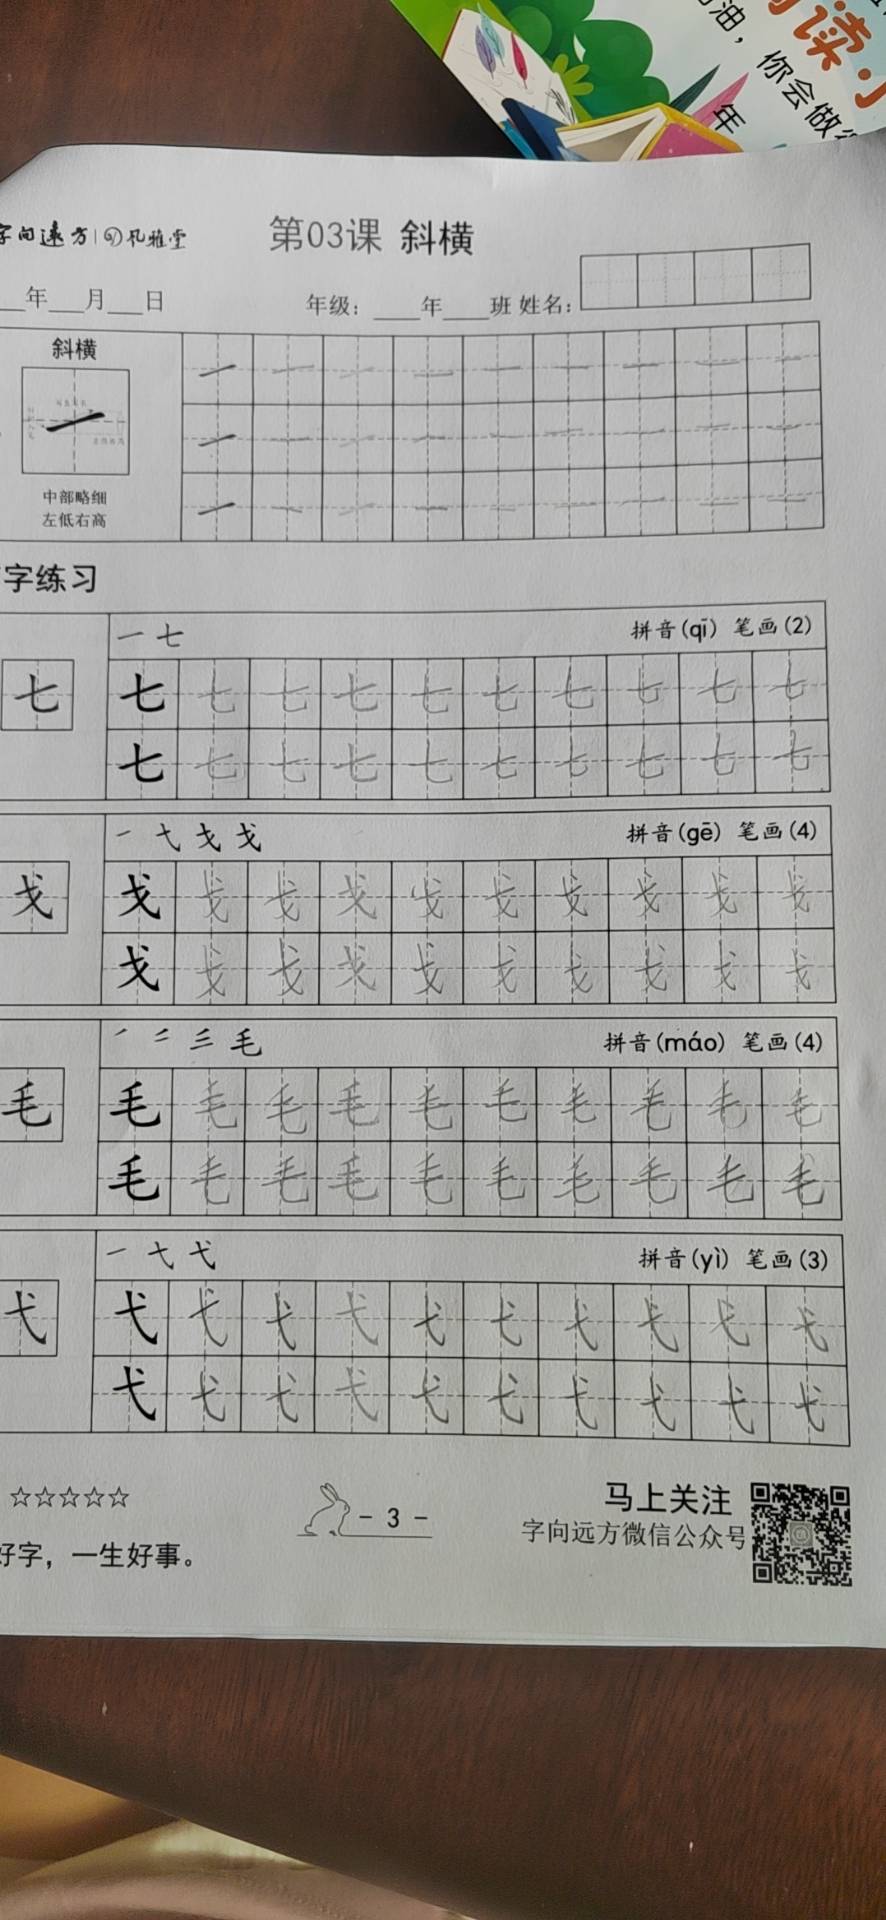 油，
你会做
读
年
字向远方
第03课 斜横
年 月 日
年级： 年 班 姓名：
斜横
中部略细
左低右高
字练习
一 七
拼音(qī) 笔画(2)
七 七 七 七 七 七 七 七 七 七 七
七 七 七 七 七 七 七 七 七 七
一 弋 戈 戈
拼音(gē) 笔画(4)
戈 戈 戈 戈 戈 戈 戈 戈 戈 戈 戈
戈 戈 戈 戈 戈 戈 戈 戈 戈 戈
拼音(máo) 笔画(4)
毛
毛 毛 毛 毛 毛 毛 毛 毛 毛 毛 毛
毛 毛 毛 毛 毛 毛 毛 毛 毛 毛
一 七 弋
拼音(yì) 笔画(3)
弋 弋 弋 弋 弋 弋 弋 弋 弋 弋 弋
弋 弋 弋 弋 弋 弋 弋 弋 弋 弋
☆☆☆☆☆
- 3 -
马上关注
字向远方微信公众号
好字，一生好事。